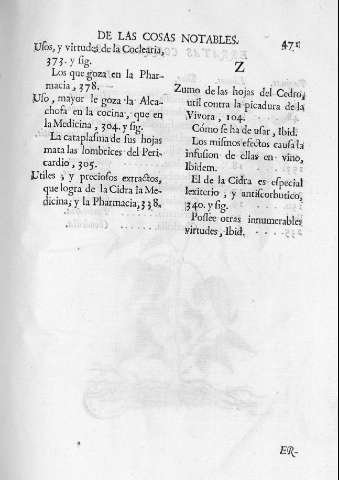 DE LAS COSAS NOTABLES. 471
Usos, y virtudes de la Coclearia,
373. y sig.
Los que goza en la Phar-
macia, 378.
Uso, mayor le goza la Alca-
chofa en la cocina, que en
la Medicina, 304. y sig.
La cataplasma de sus hojas
mata las lombrices del Peri-
cardio, 305.
Utiles, y preciosos extractos,
que logra de la Cidra la Me-
dicina, y la Pharmacia, 338.
Z
Zumo de las hojas del Cedro,
util contra la picadura de la
Vivora, 104.
Cómo se ha de usar, Ibid.
Los mismos efectos causa la
infusion de ellas en vino,
Ibidem.
El de la Cidra es especial
lexiterio, y antiscorbutico,
340. y sig.
Possee otras innumerables
virtudes, Ibid.
ER-